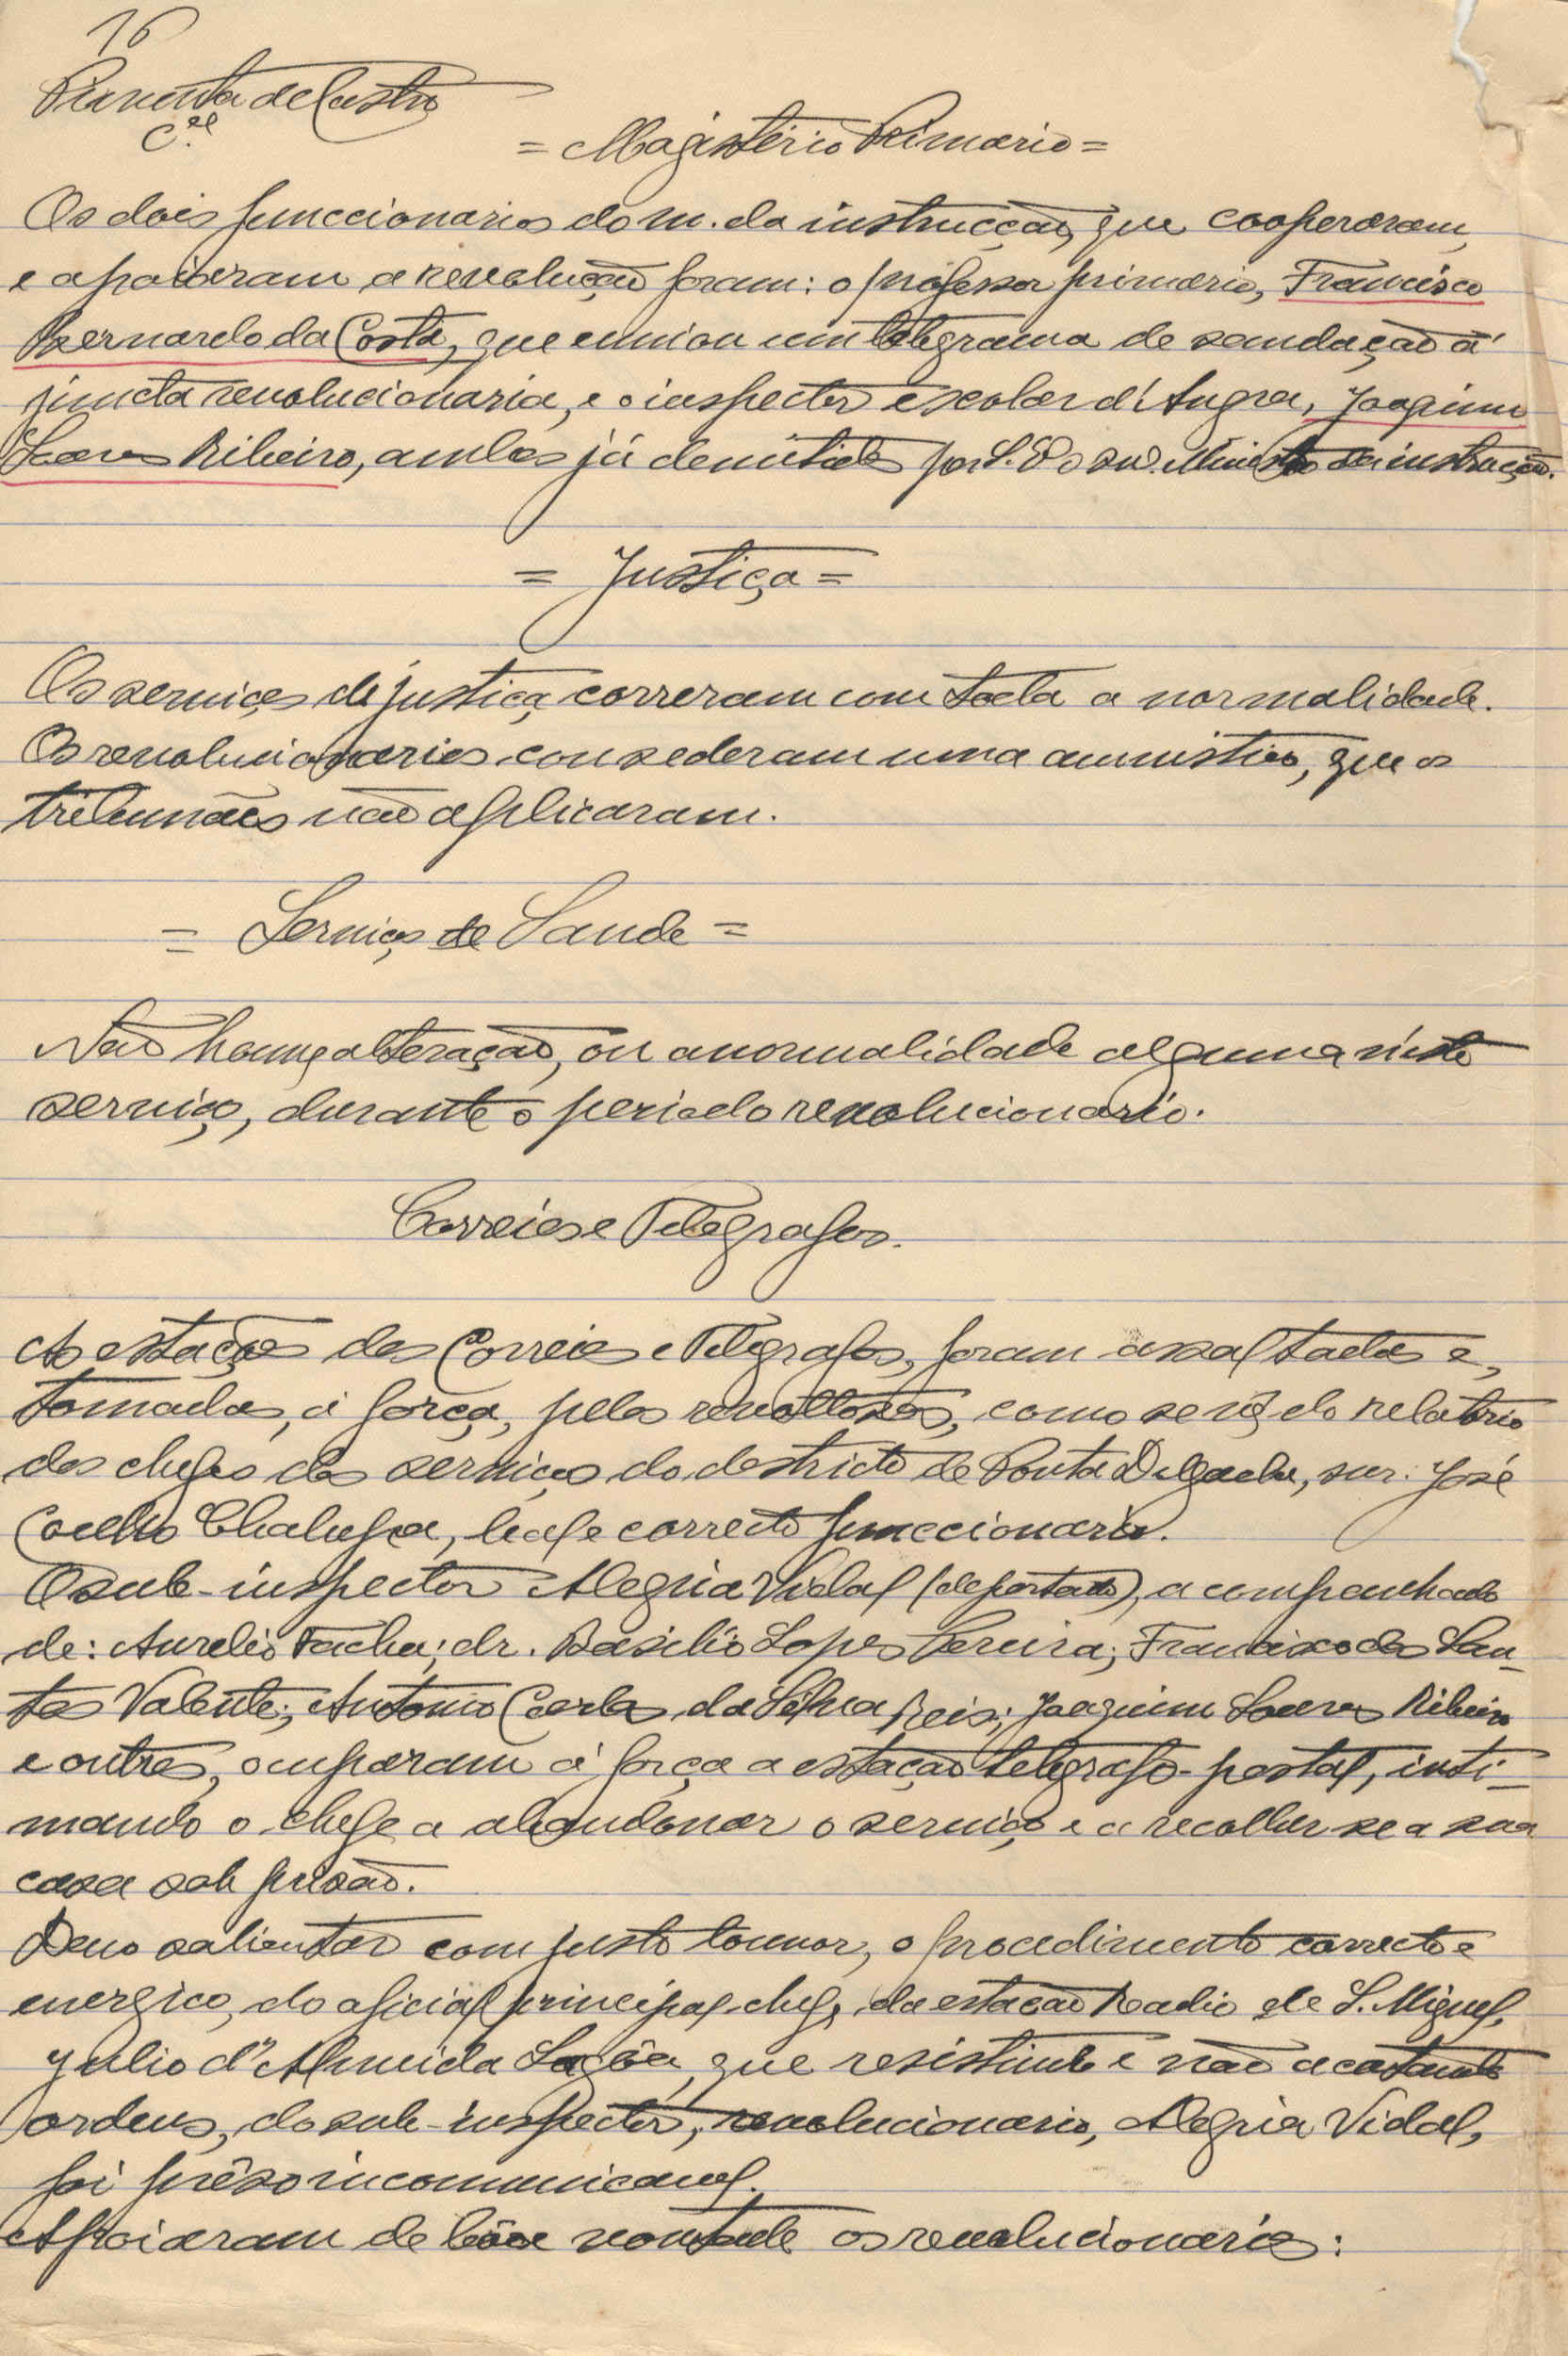 16
Pimenta de Castro
C.el
= Magistério Primario =
Os dois funccionarios do m. da instrucção, que cooperaram,
e apoiaram a revolução foram: o professor primario, Francisco
Bernardo da Costa, que enviou um telegrama de saudação á
juncta revolucionaria, e o inspector escolar d'Angra, Joaquim
Soares Ribeiro, ambos já demitidos por S. Ex.ª o snr. Ministro da instrução.
= Justiça =
Os serviços de justiça correram com toda a normalidade.
Os revolucionarios consederam uma amnistia, que os
tribunães não aplicaram.
= Serviços de Saude =
Não houve alteração, ou anormalidade alguma n'este
serviço, durante o periodo revolucionario.
Correios e Telegrafos.
As estações dos Correios e Telegrafos, foram assaltadas e,
tomadas, á força, pelos revoltosos, como se vê do relatorio
dos chefes dos serviços do destricto de Ponta Delgada, snr. José
Coelho Chalupa, leal e correcto funccionario.
O sub-inspector Alegria Vidal (deportado), acompanhado
de: Aurelio Tacha; dr. Basilio Lopes Pereira; Francisco dos San-
tos Valente; Antonio Carlos da Silva Reis; Joaquim Soares Ribeiro
e outros, ocuparam á força a estação telegrafo-postal, inti-
mando o chefe a abandonar o serviço e a recolher se a sua
casa sob prisão.
Devo salientar com justo louvor, o procedimento correcto e
energico, do oficial principal chefe da estacão Radio de S. Miguel,
Julio d'Almeida Lagôa, que resistindo e não acatando
ordens, do sub-inspector, revolucionario, Alegria Vidal,
foi prêso incomunicavel.
Apoiaram de bôa vontade os revolucionarios: